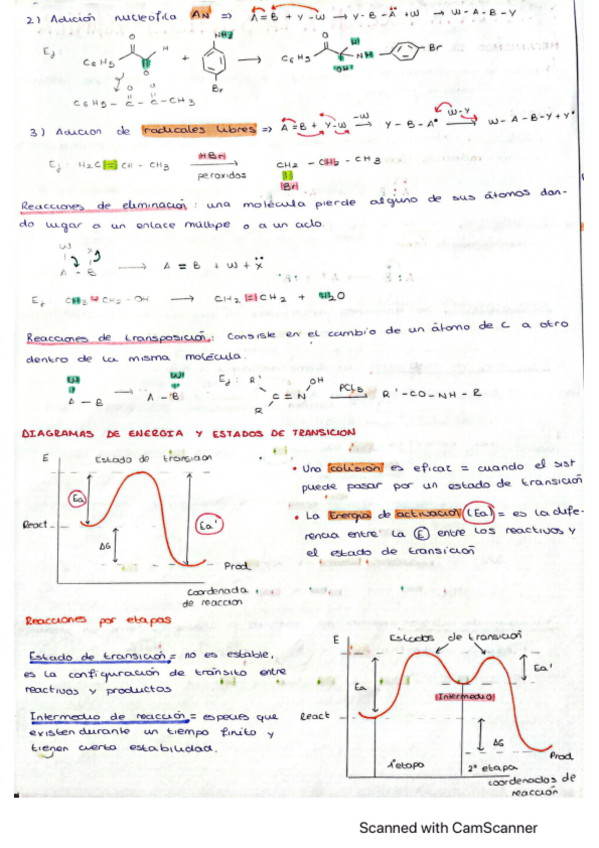 2) Adición nucleofila AN => A=B + Y-W → Y-B-A + W → W-A-B-Y
Ej: C6H5 O O H + NH2 Br → C6H5 O H NH OH Br
C6H5 - C - C - CH3
O O
3) Adicion de radicales libres => A=B + Y-W -W → Y-B-A• W-Y → W-A-B-Y+Y•
Ej: H2C=CH-CH3 HBr peroxidos → CH2-CH2-CH3
Br
Reacciones de eliminación: una molécula pierde alguno de sus átomos dan-
do lugar a un enlace múltipe o a un ciclo.
W X
A - B → A = B + W + X
Ej CH2 CH2-OH → CH2=CH2 + H2O
Reacciones de transposición: Consiste en el cambio de un átomo de C a otro
dentro de la misma molécula.
W W
A - B → A - B Ej: R' R C=N OH PCl5 → R'-CO-NH-R
DIAGRAMAS DE ENERGIA Y ESTADOS DE TRANSICION
E Estado de transicion
Ea
React
Ea'
ΔG
Prod
coordenada
de reaccion
• Una colisión es eficaz = cuando el sist
puede pasar por un estado de transición
• La Energia de activación (Ea) = es la dife-
rencia entre la E entre los reactivos y
el estado de transición
Reacciones por etapas
Estado de transición = no es estable,
es la configuración de tránsito entre
reactivos y productos
Intermedio de reacción = especies que
existen durante un tiempo finito y
tienen cierta estabilidad.
E Estados de transicion
Ea
Ea'
Intermedio
React
ΔG
Prod
1ª etapa
2ª etapa
coordenadas de
reacción
Scanned with CamScanner